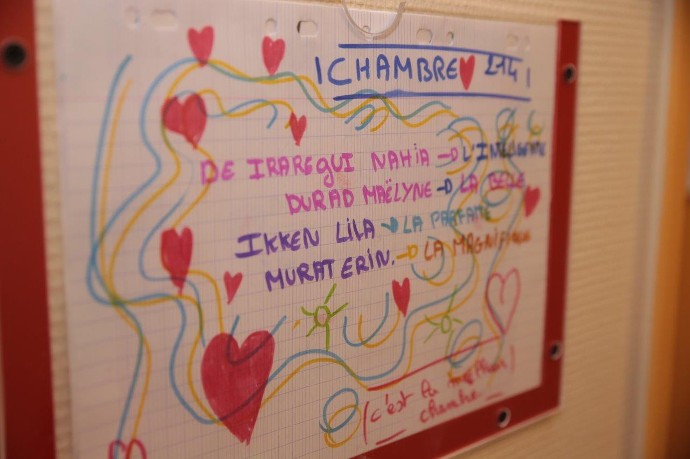 CHAMBRE 214
DE IRAREGUI NAHIA → L'INTELLIGENTE
DURAD MAËLYNE → LA BELLE
IKKEN LILA → LA PARFAITE
MURAT ERIN. → LA MAGNIFIQUE
(c'est la
chambre